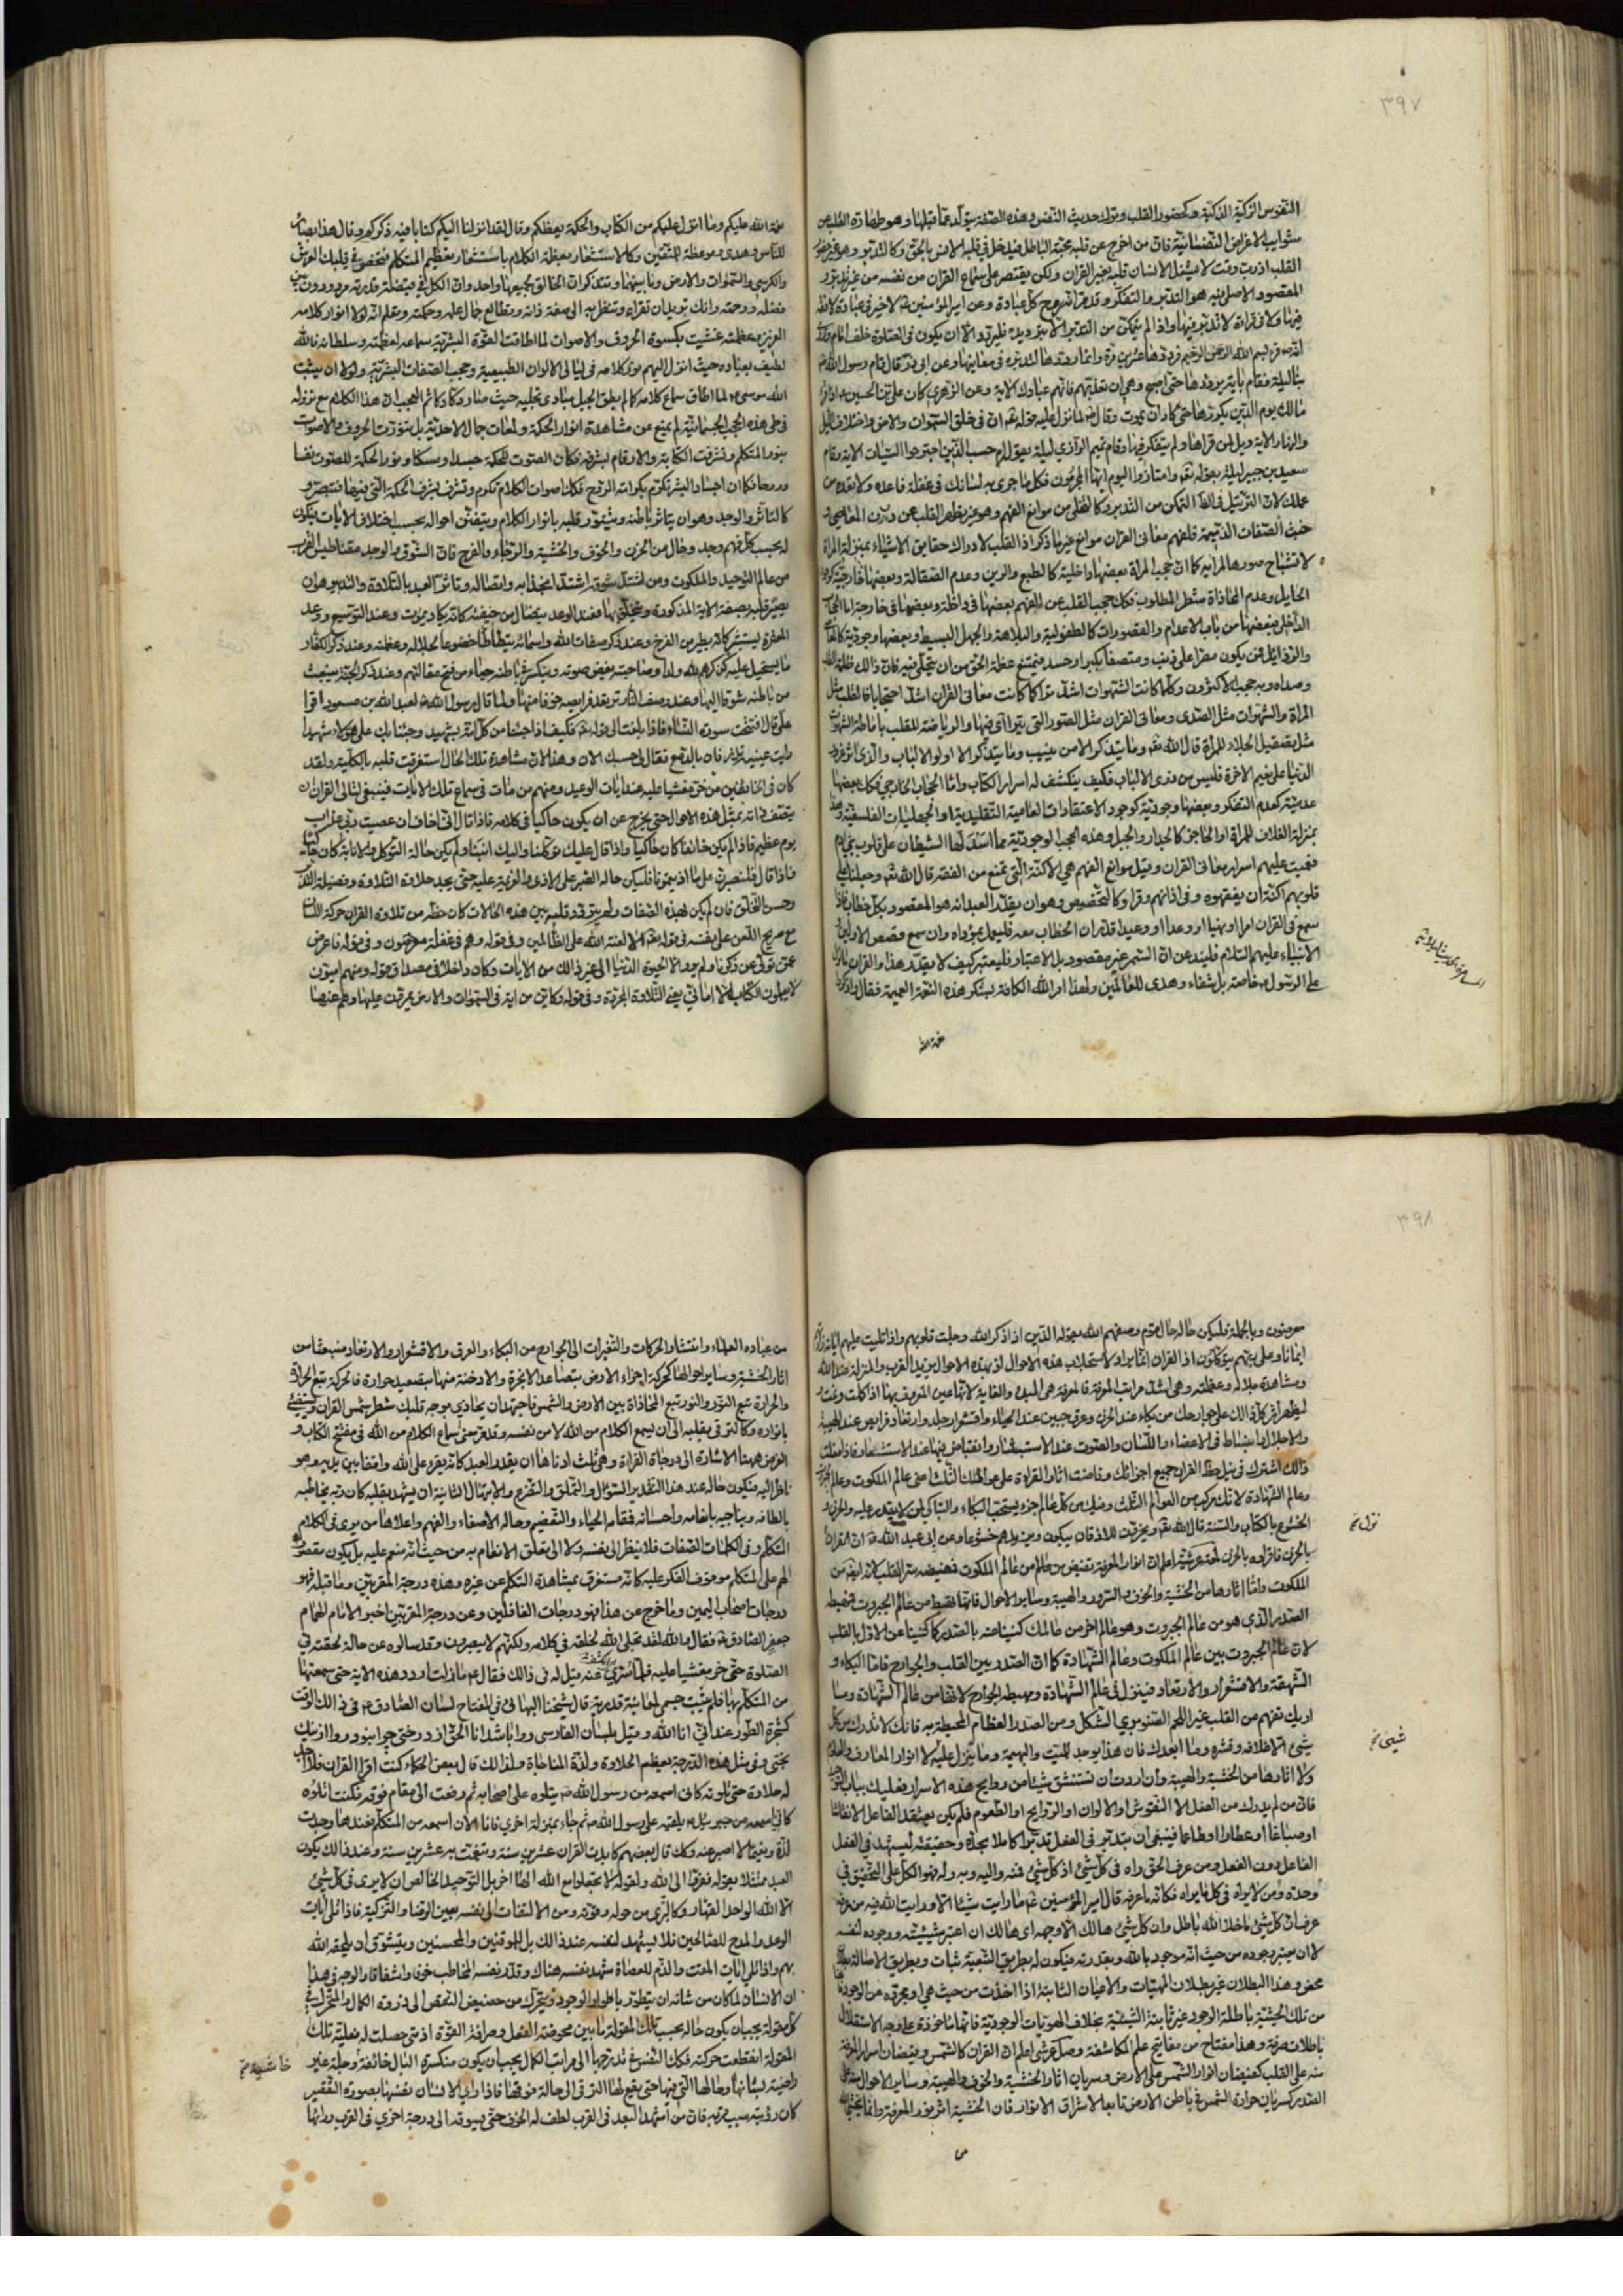 ٣٩٧
النفوس الزكية الذكية وكحضور القلب وترك حديث النفس وهذه الصفة يتولد عما قبلها وهو طهارة القلب عن
شوايب الاغراض النفسانية فان من اخرج عن قلبه محبة الباطل فيدخل في قلبه الانس بالحق وكالتدبر وهو غير حضور
القلب اذ رب وقت لا يشغل الانسان قلبه بغير القران ولكن يقتصر على سماع القران من نفسه من غير تدبر و
المقصود الاصلى منه هو التدبر والتفكر وعن امير المؤمنين لا خير في عبادة لا فقه
فيها ولا في قراءة لا تدبر فيها واذا لم يتمكن من التدبر الا بترديد فليردد الا ان يكون في الصلوة خلف امام
انه قرء بسم الله الرحمن الرحيم فرددها عشرين مرة وانما رددها لتدبره في معانيها وعن ابي ذر قال قام رسول الله
بنا ليلة فقام باية يرددها حتى اصبح وهي ان تعذبهم فانهم عبادك الاية وعن الزهري كان علي بن الحسين اذا قرء
مالك يوم الدين يكررها حتى كاد ان يموت وقال لما نزل عليه قوله ان في خلق السموات والارض واختلاف الليل
والنهار الاية ويل لمن قراها ولم يتفكر فيها وقام تميم الداري ليلة بقوله ام حسب الذين اجترحوا السيات الاية وقام
سعيد بن جبير ليلة بقوله وامتازوا اليوم ايها المجرمون فكل ما جرى به لسانك في غفلة فاعده ولا تعده من
عملك لان الترتيل في الظاهر للتمكن من التدبر وكالتخلي من موانع الفهم وهو غير تطهر القلب عن درن المعاصي و
خبث الصفات الذميمة فلفهم معاني القران موانع غير ما ذكر اذ القلب لادراك حقايق الاشياء بمنزلة المراة
لانشباح صورها المرائية كما ان حجب المراة بعضها داخلية كالطبع والرين وعدم الصقالة وبعضها خارجية كوجود
الحايل وعدم المحاذاة شطر المطلوب فكذلك حجب القلب عن الفهم بعضها في داخله وبعضها في خارجه اما الحجاب
الداخلي فبعضها من باب الاعدام والقصورات كالطفولية والبلاهة والجهل البسيط وبعضها وجودية كالمعاصي
والرذائل فمن يكون مصرا على ذنب ومتصفا بكبر او حسد فيمتنع عظمة الحق من ان يتجلى فيه فان ذالك ظلمة القلب
وصداه وبه حجب الاكثرون وكلما كانت الشهوات اشد تراكما كانت معاني القران اشد احتجابا فالقلب مثل
المراة والشهوات مثل الصدى ومعاني القران مثل الصور التي يتراآى فيها والرياضة للقلب باماطة الشهوات
مثل تصقيل الجلاء للمراة قال الله وما يتذكر الا من ينيب وما يتذكر الا اولوا الالباب والذي اثر غرور
الدنيا على نعيم الاخرة فليس من ذوي الالباب فكيف ينكشف له اسرار الكتاب واما الحجاب الخارجي فكذلك بعضها
عدمية كعدم التفكر وبعضها وجودية كوجود الاعتقادات العامية التقليدية او الجهليات الفلسفية وهذا
بمنزلة الغلاف للمراة او الحاجز كالجدار والجبل وهذه الحجب الوجودية مما اسدلها الشيطان على قلوب بني ادم
فعميت عليهم اسرار معاني القران وقيل موانع الفهم هي الاكنة التي تمنع من الفقه قال الله وجعلنا على
قلوبهم اكنة ان يفقهوه وفي اذانهم وقرا وكالتخصيص وهو ان يقدر العبد انه هو المقصود بكل خطاب فاذا
سمع في القران امرا او نهيا او وعدا او وعيدا قدر ان الخطاب معه فليعمل بمؤداه وان سمع قصص الاولين
الانبياء عليهم السلام فليتدعن ان السمر غير مقصود بل الاعتبار فليعتبر كيف لا يقدر هذا والقران ما نزل
على الرسول خاصة بل شفاء وهدى للعالمين ولهذا امر الله الكافة بشكر هذه النعمة العميمة فقال واذكروا
نعمة الله
نعمة الله عليكم وما انزل عليكم من الكتاب والحكمة يعظكم وقال لقد انزلنا اليكم كتابا فيه ذكركم وقال هذا بصائر
للناس وهدى وموعظة للمتقين وكالاستشعار بعظمة الكلام باستشعار بعظمة المتكلم فتحضر في قلبك العرش
والكرسي والسموات والارض وما بينهما وتتذكر ان الخالق لجميعها واحد وان الكل في قبضة قدرته مردودون بين
فضله ورحمته وانك تريد ان تقراء وتنظر به الى صفة ذاته وتطالع جمال علمه وحكمته وتعلم انه لولا انوار كلامه
العزيز وعظمته غشيت بكسوة الحروف والاصوات لما اطاقت القوة البشرية سماعه لعظمته وسلطانه فالله
لطيف بعباده حيث انزل اليهم نور كلامه في ليالى الاكوان الطبيعية وحجب الصفات البشرية ولولا ان يثبت
الله موسى لما اطاق سماع كلامه كما لم يطق الجبل مبادي تجليه حيث صار دكا دكا ثم العجب ان هذا الكلام مع نزوله
في طي هذه الحجب الجسمانية لم يمنع عن مشاهدة انوار الحكمة ولمعات جمال الاحدية بل تنورت الحروف والاصوات
بنور المتكلم وتشرفت الكتابة والارقام بشرفه فكان الصوت للحكمة جسدا ومسكنا ونور الحكمة للصوت نفسا
وروحا فكما ان اجساد البشر تكرم بكرامة الروح فكذلك اصوات الكلام تكرم وتشرف بشرف الحكمة التي فيها فتبصر و
كالتاثر والوجد وهو ان يتاثر باطنه ويتنور قلبه بانوار الكلام ويتفنن احواله بحسب اختلاف الايات فيكون
له بحسب كل فهم وجد وحال من الحزن والخوف والخشية والرجاء والفرح فان الشوق والوجد مقناطيس القرب
من عالم التوحيد والملكوت ومن اشتد شوقه اشتد انجذابه واتصاله وتاثر العبد بالتلاوة والتدبر هو ان
يصير قلبه بصفة الاية المذكورة ويتخلق بها فعند الوعيد يتضال من خيفته كانه يكاد يموت وعند التوسيع ووعد
المغفرة يستبشر كانه يطير من الفرح وعند ذكر صفات الله واسمائه يتطاطا خضوعا لجلاله وعظمته وعند ذكر الكفار
ما يستحيل عليه كذكرهم لله ولدا وصاحبته يغض صوته وينكسر باطنه حياء من قبح مقالتهم وعند ذكر الجنة ينبعث
من باطنه شوقا اليها وعند وصف النار ترتعد فرايصه خوفا منها ولما قال رسول الله لعبد الله بن مسعود اقرا
علي قال فافتتحت سورة النساء فاذا بلغت الى قوله فكيف اذا جئنا من كل امة بشهيد وجئنا بك على هؤلاء شهيدا
رايت عينيه تذرفان بالدمع فقال لي حسبك الان وهذا لان مشاهدة تلك الحال استغرقت قلبه بالكلية ولقد
كان في الخائفين من خر مغشيا عليه عند ايات الوعيد ومنهم من مات في سماع تلك الايات فينبغي لتالي القران ان
يتصف ذاته بمثل هذه الاحوال حتى يخرج عن ان يكون حاكيا في كلامه فاذا قال اني اخاف ان عصيت ربي عذاب
يوم عظيم فاذا لم يكن خائفا كان حاكيا واذا قال عليك توكلنا واليك انبنا ولم يكن حاله التوكل والانابة كان حاكيا
فاذا قال فلنصبرن على ما اذيتمونا فليكن حاله الصبر على الاذى والعزيمة عليه حتى يجد حلاوة التلاوة وفضيلة
وحسن التخلق فان لم يكن لهذه الصفات ولم يتردد قلبه بين هذه الحالات كان حظه من تلاوة القران حركة اللسان
مع صريح اللعن على نفسه في قوله الا لعنة الله على الظالمين وفي قوله وهم في غفلة معرضون وفي قوله فاعرض
عمن تولى عن ذكرنا ولم يرد الا الحيوة الدنيا الى غير ذالك من الايات وكان داخلا في مصداق قوله ومنهم اميون
لا يعلمون الكتاب الا اماني يعني التلاوة المجردة وفي قوله وكاين من اية في السموات والارض يمرون عليها وهم عنها
٣٩٨
معرضون وبالجملة فليكن حاله حال قوم وصفهم الله بقوله الذين اذا ذكر الله وجلت قلوبهم واذا تليت عليهم اياته زادتهم
ايمانا وعلى ربهم يتوكلون اذ القران انما يراد لاستجلاب هذه الاحوال اذ بهذه الاحوال يزيد القرب والمنزلة عند الله
ومشاهدة جلاله وعظمته وهي اشد مراتب المعرفة فالمعرفة هي المبدء والغاية لانها عين المعروف بها اذا كملت وتمت و
ليظهر اثر كل ذالك على جوارحك من بكاء عند الحزن وعرق جبين عند الحياء واقشعرار جلد وارتعاد فرايص عند الهيبة
والاجلال وانبساط في الاعضاء واللسان والصوت عند الاستبشار وانقباض فيها عند الاستشعار فاذا فعلت
ذالك اشترك في نيل حظ القران جميع اجزائك وفاضت اثار القراءة على عوالمك الثلث اعني عالم الملكوت وعالم الجبروت
وعالم الشهادة لانك مركب من العوالم الثلث وفيك من كل عالم جزء يستحب البكاء والتباكي لمن لا يقدر عليه والحزن و
الخشوع بالكتاب والسنة قال الله ويخرون للاذقان يبكون ويزيدهم خشوعا وعن ابي عبد الله ان القران
بالحزن فاقرؤه بالحزن لمعة عرشية اعلم ان انوار المعرفة تفيض من عالم من عالم الملكوت فمهبطه سر القلب لانه ايضا من
الملكوت واما اثارها من الخشية والخوف والسرور والهيبة وساير الاحوال فانما تهبط من عالم الجبروت ومهبطه
الصدر الذي هو من عالم الجبروت وهو عالم اخر من عالمك كنينا عنه بالصدر كما كنينا عن الاول بالقلب
لان عالم الجبروت بين عالم الملكوت وعالم الشهادة كما ان الصدر بين القلب والجوارح فاما البكاء و
الشهقة والاقشعرار والارتعاد فينزل في عالم الشهادة ومهبطه الجوارح لانها من عالم الشهادة وما
اريك تفهم من القلب غير اللحم الصنوبري الشكل ومن الصدر العظام المحيطة به فانك لا تدرك من كل
شيئ الا غلافه وقشره وما ابعدك فان هذا يوجد للميت والبهيمة وما يتنزل عليه الا انوار المعارف والعلوم
ولا اثارها من الخشية والهيبة وان اردت ان تستنشق شيئا من روايح هذه الاسرار فعليك بباب التوحيد
فان من لم يدرك من الفعل الا النقوش او الالوان او الروايح او الطعوم فلم يكن يعتقد الفاعل الا نقاشا
او صباغا او عطارا او طاعما فينبغي ان يتدبر في الفعل تدبرا كاملا يجده وحقيقته ليستشهد في الفعل
الفاعل دون الفعل ومن عرف الحق راه في كل شيئ اذ كل شيئ فمنه واليه وبه وله فهو الكل على التحقيق في
وحدة ومن لا يراه في كل ما يراه فكانه ما عرفه قال امير المؤمنين ما رايت شيئا الا ورايت الله فيه من عرفه
عرف ان كل شيئ ما خلا الله باطل وان كل شيئ هالك الا وجهه اى هالك ان اعتبر شيئيته ووجوده لنفسه
لا ان يعتبر وجوده من حيث انه موجود بالله وبقدرته فيكون له بطريق التبعية ثبات وبطريق الاصالة بطلان
محض وهذا البطلان غير بطلان المهيات والاعيان الثابتة اذا اخذت من حيث هي او مجردة عن الوجود فانها
من تلك الحيثية باطلة الوجود غير ثابتة الشيئية بخلاف الهويات الوجودية فانها ماخوذة على وجه الاستقلال
باطلات صرفة وهذا مفتاح من مفاتيح علم المكاشفة وصل عرشي اعلم ان القران كالشمس وفيضان اسرار المعرفة
منه على القلب كفيضان انوار الشمس على الارض وسريان اثار الخشية والخوف والهيبة وساير الاحوال منه على
الصدر كسريان حرارة الشمس في باطن الارض تابعا لاشراق الانوار فان الخشية اثر نور المعرفة وانما يخشى الله
من
من عباده العلماء وانتشار الحركات والتغيرات الى الجوارح من البكاء والعرق والاقشعرار والارتعاد منبعثا من
اثار الخشية وساير احوالها كحركة اجزاء الارض بتصاعد الابخرة والادخنة منها بتصعيد حرارة فالحركة تتبع الحرارة
والحرارة تتبع النور والنور تتبع المحاذاة بين الارض والشمس فاجتهد ان يحاذي بوجه قلبك شطر شمس القران ويستضئ
بانواره وكالترقى بقلبه الى ان يسمع الكلام من الله لا من نفسه وقد مر معنى سماع الكلام من الله في مفتتح الكتاب و
الغرض ههنا الاشارة الى درجات القراءة وهي ثلث ادناها ان يقدر العبد كانه يقرء على الله واقفا بين يديه وهو
ناظر اليه فيكون حاله عند هذا التقدير السؤال والتملق والتضرع والابتهال الثانية ان يشهد بقلبه كان ربه يخاطبه
بالطافه ويناجيه بانعامه واحسانه فمقامه الحياء والتعظيم وحاله الاصغاء والفهم واعلاها من يرى في الكلام
المتكلم وفي الكلمات الصفات فلا ينظر الى نفسه ولا الى تعلق الانعام به من حيث انه منعم عليه بل يكون مقصور
الهم على المتكلم موقوف الفكر عليه كانه مستغرق بمشاهدة المتكلم عن غيره وهذه درجة المقربين وما قبله فهو
درجات اصحاب اليمين وما خرج عن هذا فهو درجات الغافلين وعن درجة المقربين اخبر الامام الهمام
جعفر الصادق فقال والله لقد تجلى الله لخلقه في كلامه ولكنهم لا يبصرون وقد سالوه عن حالة لحقته في
الصلوة حتى خر مغشيا عليه فلما سري عنه قيل له في ذالك فقال ما زلت اردد هذه الاية حتى سمعتها
من المتكلم بها فلم يثبت جسمي لمعاينة قدرته قال شيخنا البهائي في المفتاح لسان الصادق في ذالك الوقت
كشجرة الطور عند اني انا الله وقيل بلسان الفارسي روا باشد انا الحق از درختى چرا نبود روا از نيك
بختى وفي مثل هذه الدرجة يعظم الحلاوة ولذة المناجاة ولذالك قال بعض الحكماء كنت اقرا القران فلا اجد
له حلاوة حتى تلوته كاني اسمعه من رسول الله يتلوه على اصحابه ثم رفعت الى مقام فوقه فكنت اتلوه
كاني اسمعه من جبرئيل يلقيه على رسول الله ثم جاء بمنزلة اخرى فانا الان اسمعه من المتكلم فعندها وجدت
لذة ونعيما لا اصبر عنه وكذلك قال بعضهم كابدت القران عشرين سنة وتنعمت به عشرين سنة وعند ذالك يكون
العبد ممتثلا بقوله ففروا الى الله ولقوله لا تجعلوا مع الله الها اخر بل التوحيد الخالص ان لا يرى في كل شيئ
الا الله الواحد القهار وكالتبري من حوله وقوته ومن الالتفات الى نفسه بعين الرضا والتزكية فاذا تلى ايات
الوعد والمدح للصالحين فلا يشهد لنفسه عند ذالك بل للموقنين والمحسنين ويتشوق ان يلحقه الله
بهم واذا تلى ايات المقت والذم للعصاة شهد بنفسه هناك وقدر نفسه المخاطب خوفا واشفاقا والوجه في هذا
ان الانسان لما كان من شانه ان يتطور باطوار الوجود ويتحرك من حضيض النقص الى ذروة الكمال والمتحرك في
كل مقولة يجب ان يكون حاله بحسب تلك المقولة ما بين محوضة الفعل وصرافة القوة اذ متى حصلت له فعلية تلك
المقولة انقطعت حركته فكذلك النفس في تدرجها الى مراتب الكمال يجب ان يكون منكسرة البال خائفة وجلة غير
راضية بشانها وحالها التي فيها حتى يقع لها الترقى الى حالة فوقها فاذا راى الانسان نفسه بصورة التقصير
كان رؤيته سبب قربه فان من اشهد البعد في القرب لطف له الخوف حتى يسوقه الى درجة اخرى في القرب وراءها